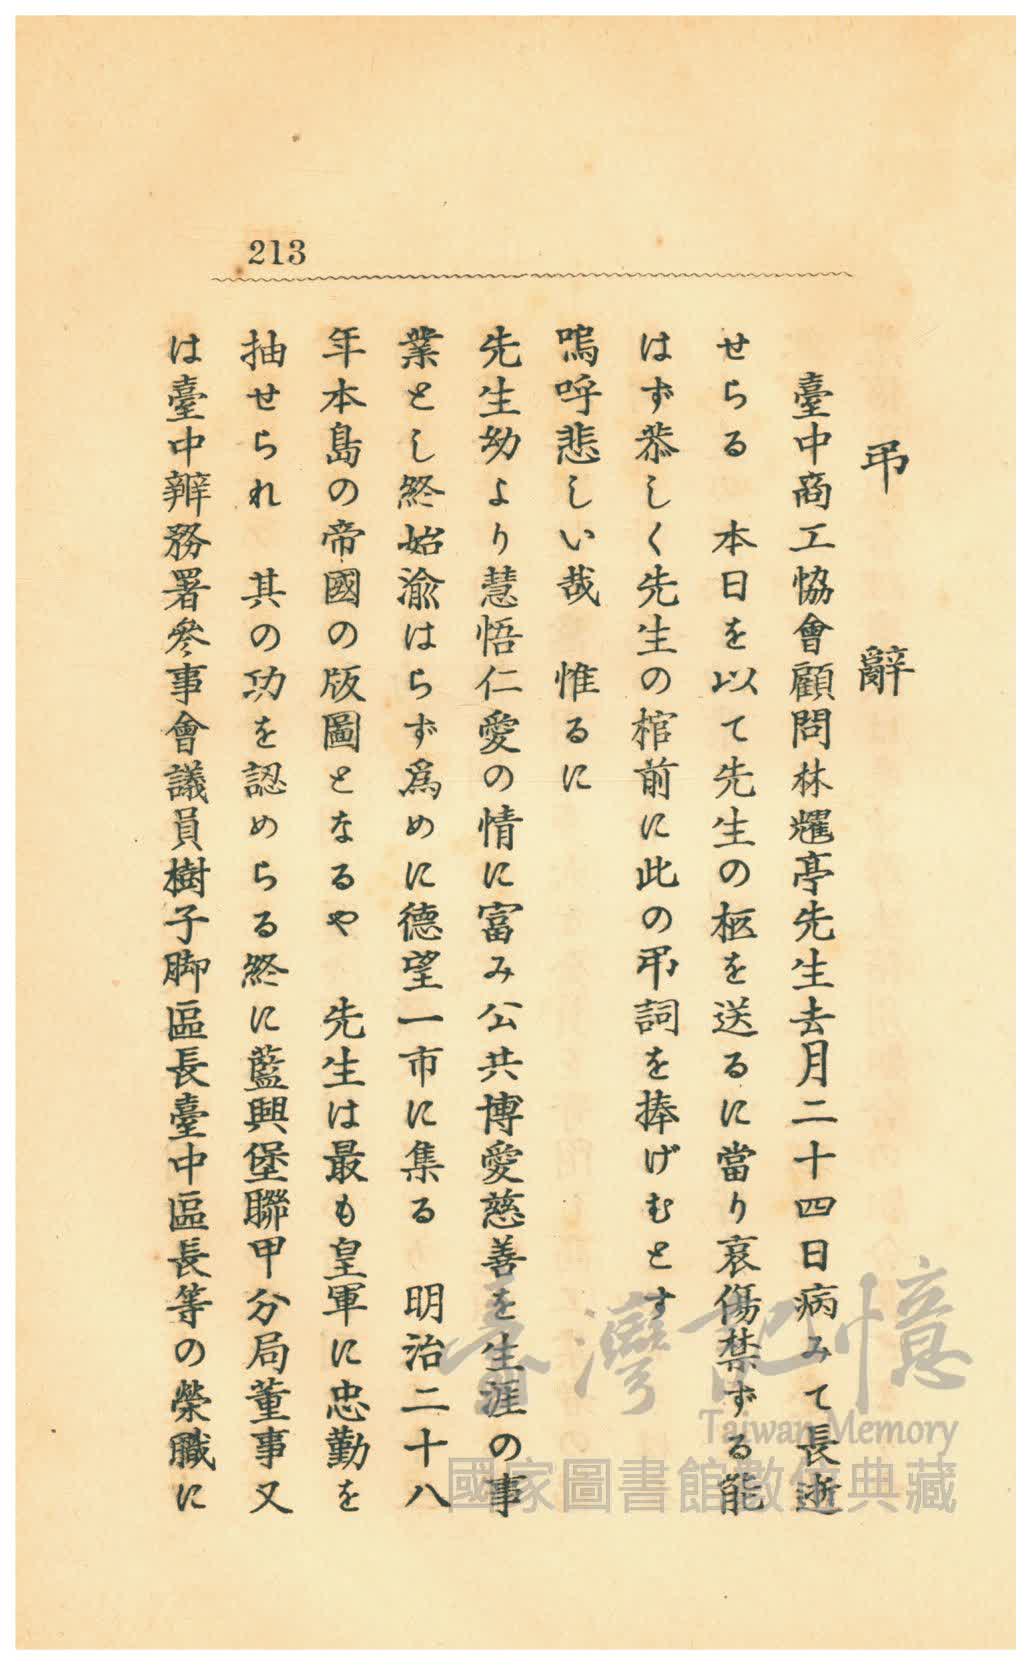 213
弔辭
臺中商工協會顧問林耀亭先生去月二十四日病みて長逝
せらる　本日を以て先生の柩を送るに當り哀傷禁ずる能
はず恭しく先生の棺前に此の弔詞を捧げむとす
嗚呼悲しい哉　惟るに
先生幼より慧悟仁愛の情に富み公共博愛慈善を生涯の事
業とし終始渝はらず爲めに德望一市に集る　明治二十八
年本島の帝國の版圖となるや　先生は最も皇軍に忠勤を
抽せられ　其の功を認めらる終に藍興堡聯甲分局董事又
は臺中辨務署參事會議員樹子脚區長臺中區長等の榮職に
臺灣記憶
Taiwan Memory
國家圖書館數位典藏